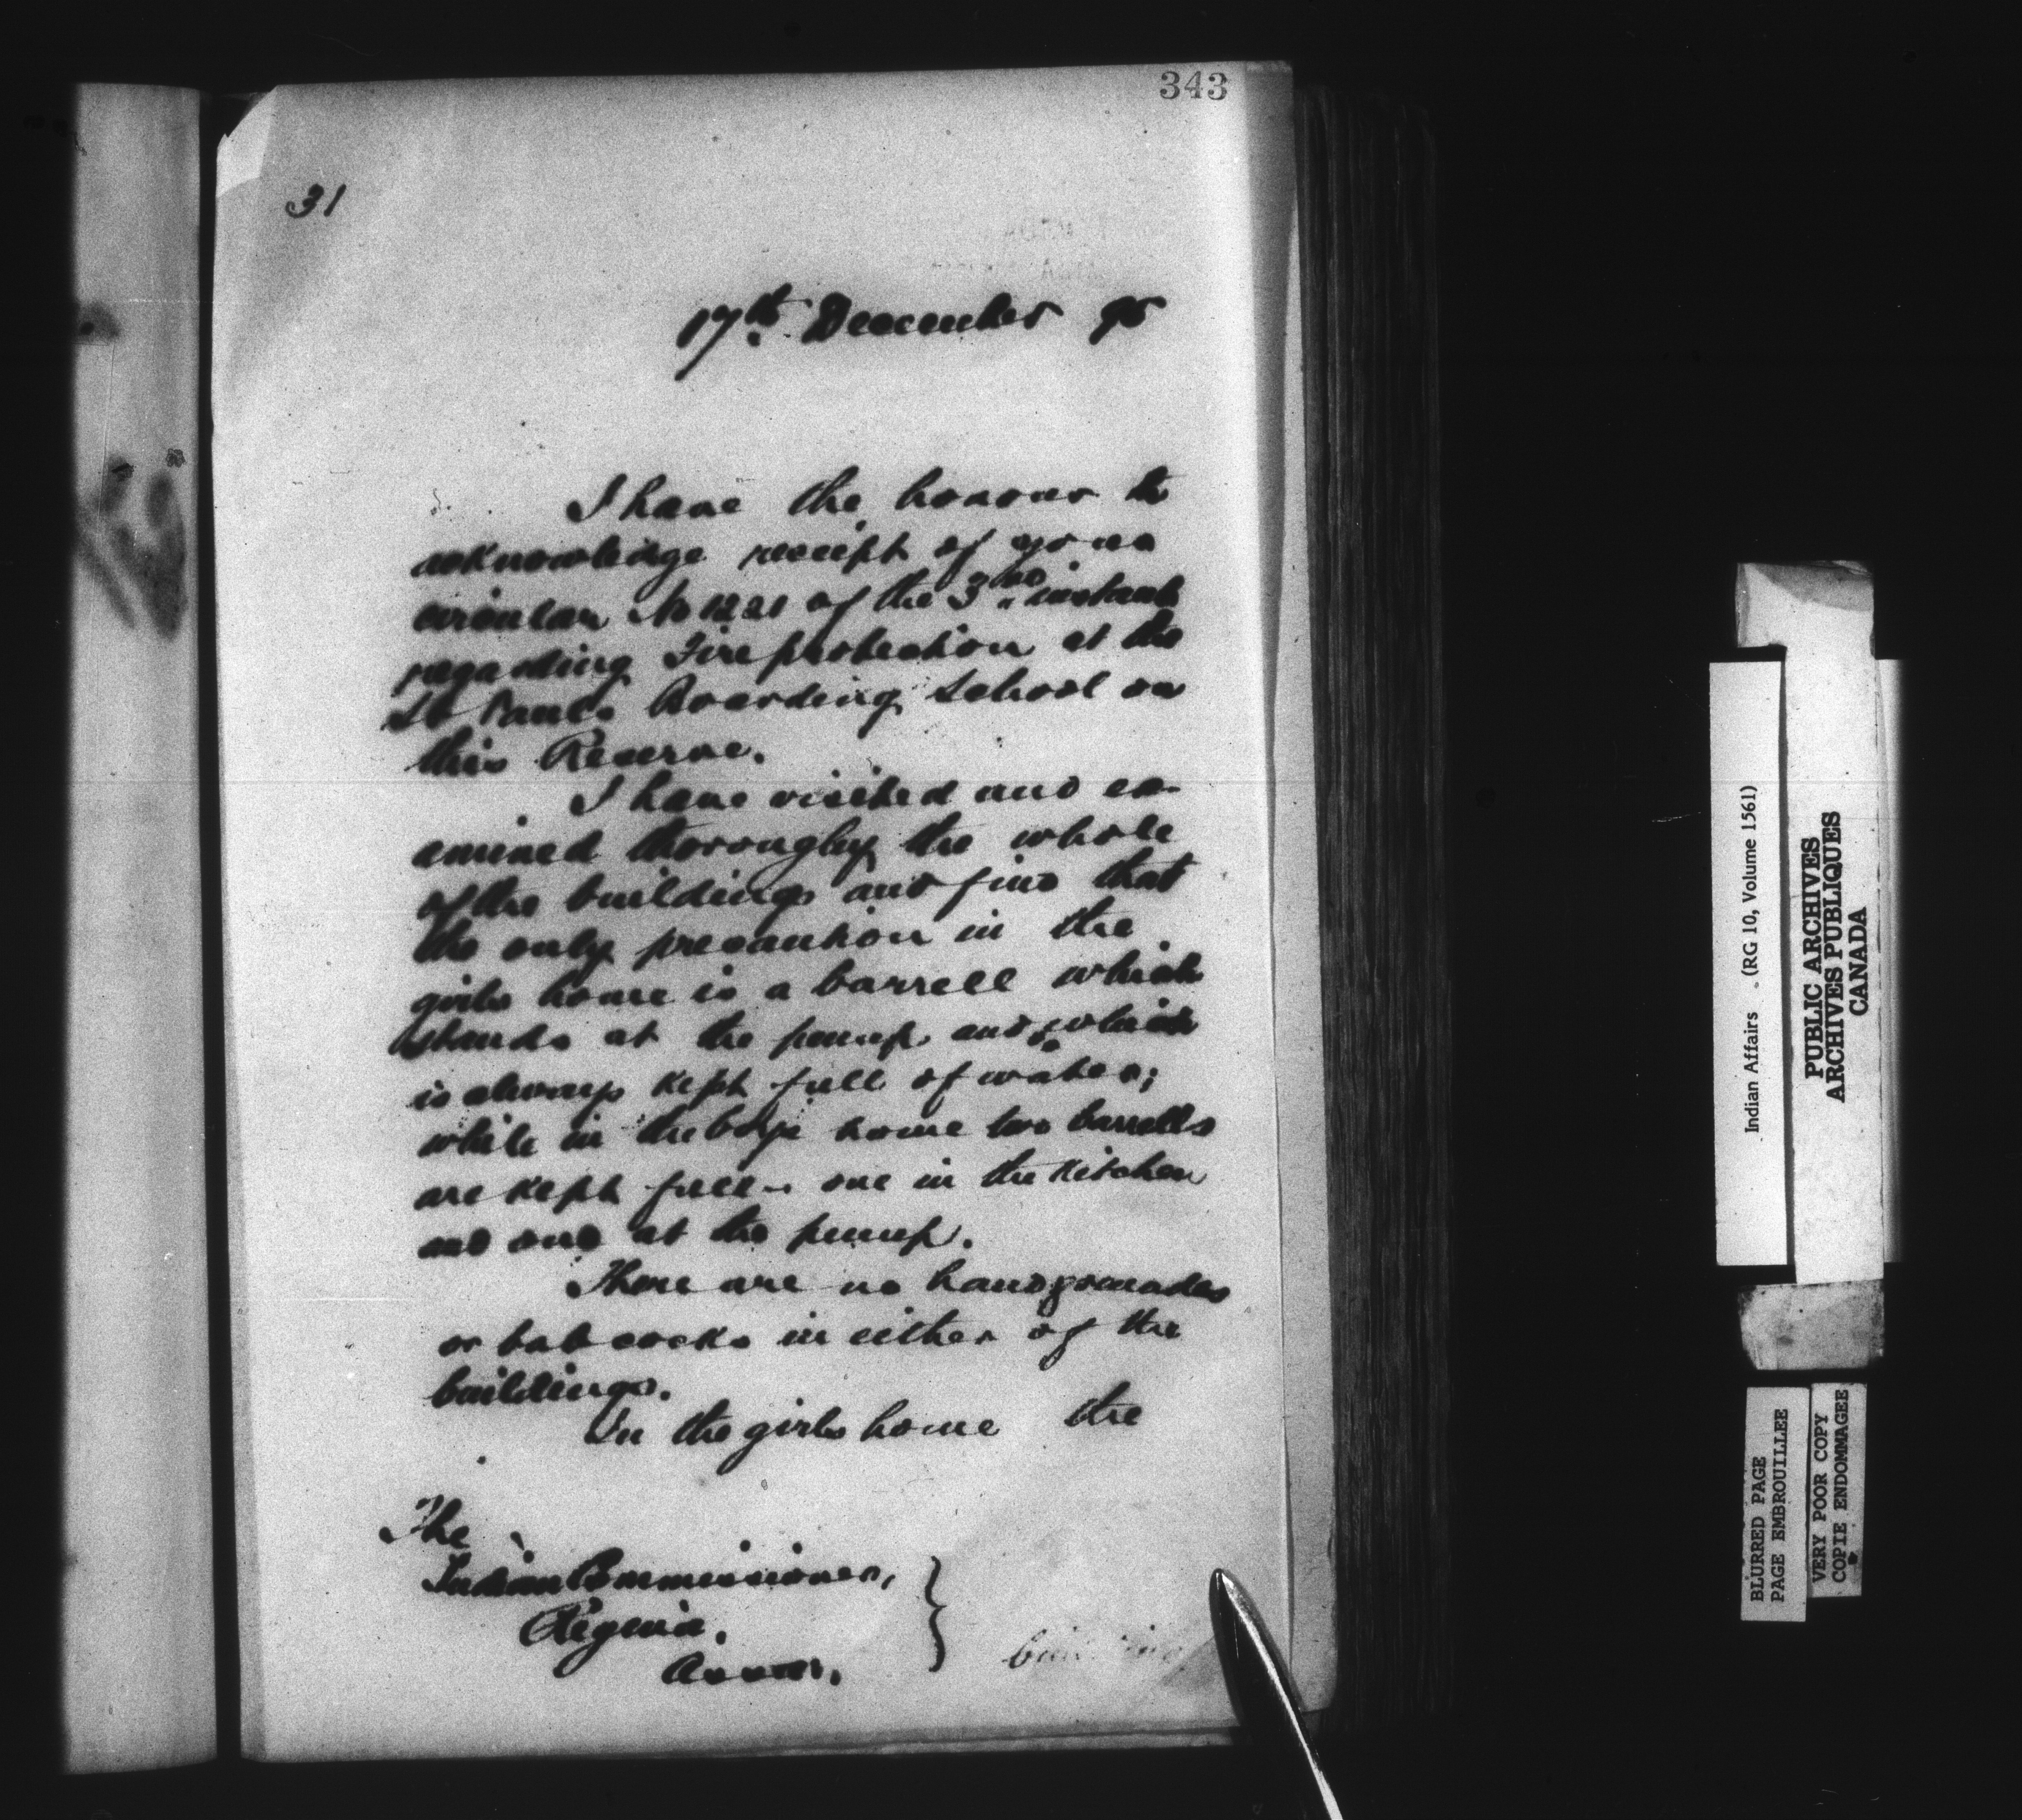 343
31
17th December 95
I have the honour to
acknowledge receipt of your
circular No 1221 of the 3rd instant
regarding Fire protection at the
St Pauls Boarding School on
this Reserve.
I have visited and ex-
amined thorougly the whole
of the buildings and find that
the only precaution in the
girls home is a barrell which
stands at the pump and which
is always kept full of water;
while in the boys home two barrells
are kept full - one in the Kitchen
and one at the pump.
There are no handgrenades
or babcocks in either of the
buildings.
In the girls home the
The
Indian Commissioner,
Regina,
Assa.
building
Indian Affairs . (RG 10, Volume 1561)
PUBLIC ARCHIVES
ARCHIVES PUBLIQUES
CANADA
BLURRED PAGE
PAGE EMBROUILLEE
VERY POOR COPY
COPIE ENDOMMAGEE